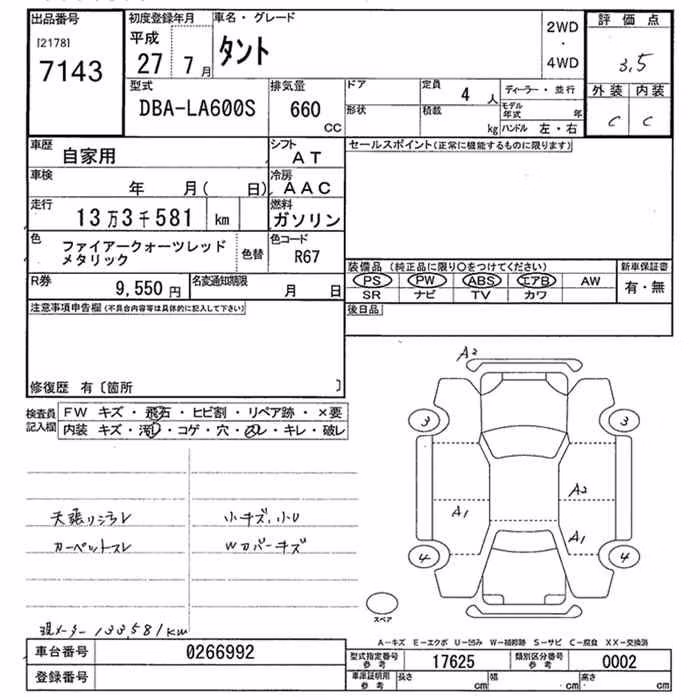 出品番号
[2178]
7143
初度登録年月
平成
27 7 月
車名・グレード
タント
2WD
・
4WD
評価点
3.5
外装 内装
C C
型式
DBA-LA600S
排気量
660
CC
ドア
形状
定員
4 人
積載
kg
ディーラー・並行
モデル年式 年
ハンドル 左・右
車歴
自家用
シフト
AT
車検
年 月( 日)
冷房
AAC
走行
13万3千581 km
燃料
ガソリン
色
ファイアークォーツレッド
メタリック
色替
色コード
R67
R券
9,550 円
名変通知期限
月 日
セールスポイント(正常に機能するものに限ります)
装備品 (純正品に限り〇をつけてください)
PS PW ABS エアB AW
SR ナビ TV カワ
新車保証書
有・無
後日品
注意事項申告欄(不具合内容等は具体的に記入して下さい)
修復歴 有〔箇所 〕
検査員
記入欄
FW キズ・飛石・ヒビ割・リペア跡・×要
内装 キズ・汚レ・コゲ・穴・スレ・キレ・破レ
天張リ汚レ
カーペットスレ
小キズ、小U
Wカバーキズ
現メーター 133,581km
A2
3
3
A2
A1
A1
4
4
スペア
A-キズ E-エクボ U-凹み W-補修跡 S-サビ C-腐食 XX-交換済
車台番号
0266992
登録番号
型式指定番号
参考
17625
類別区分番号
参考
0002
車庫証明用
参考
長さ cm
幅 cm
高さ cm